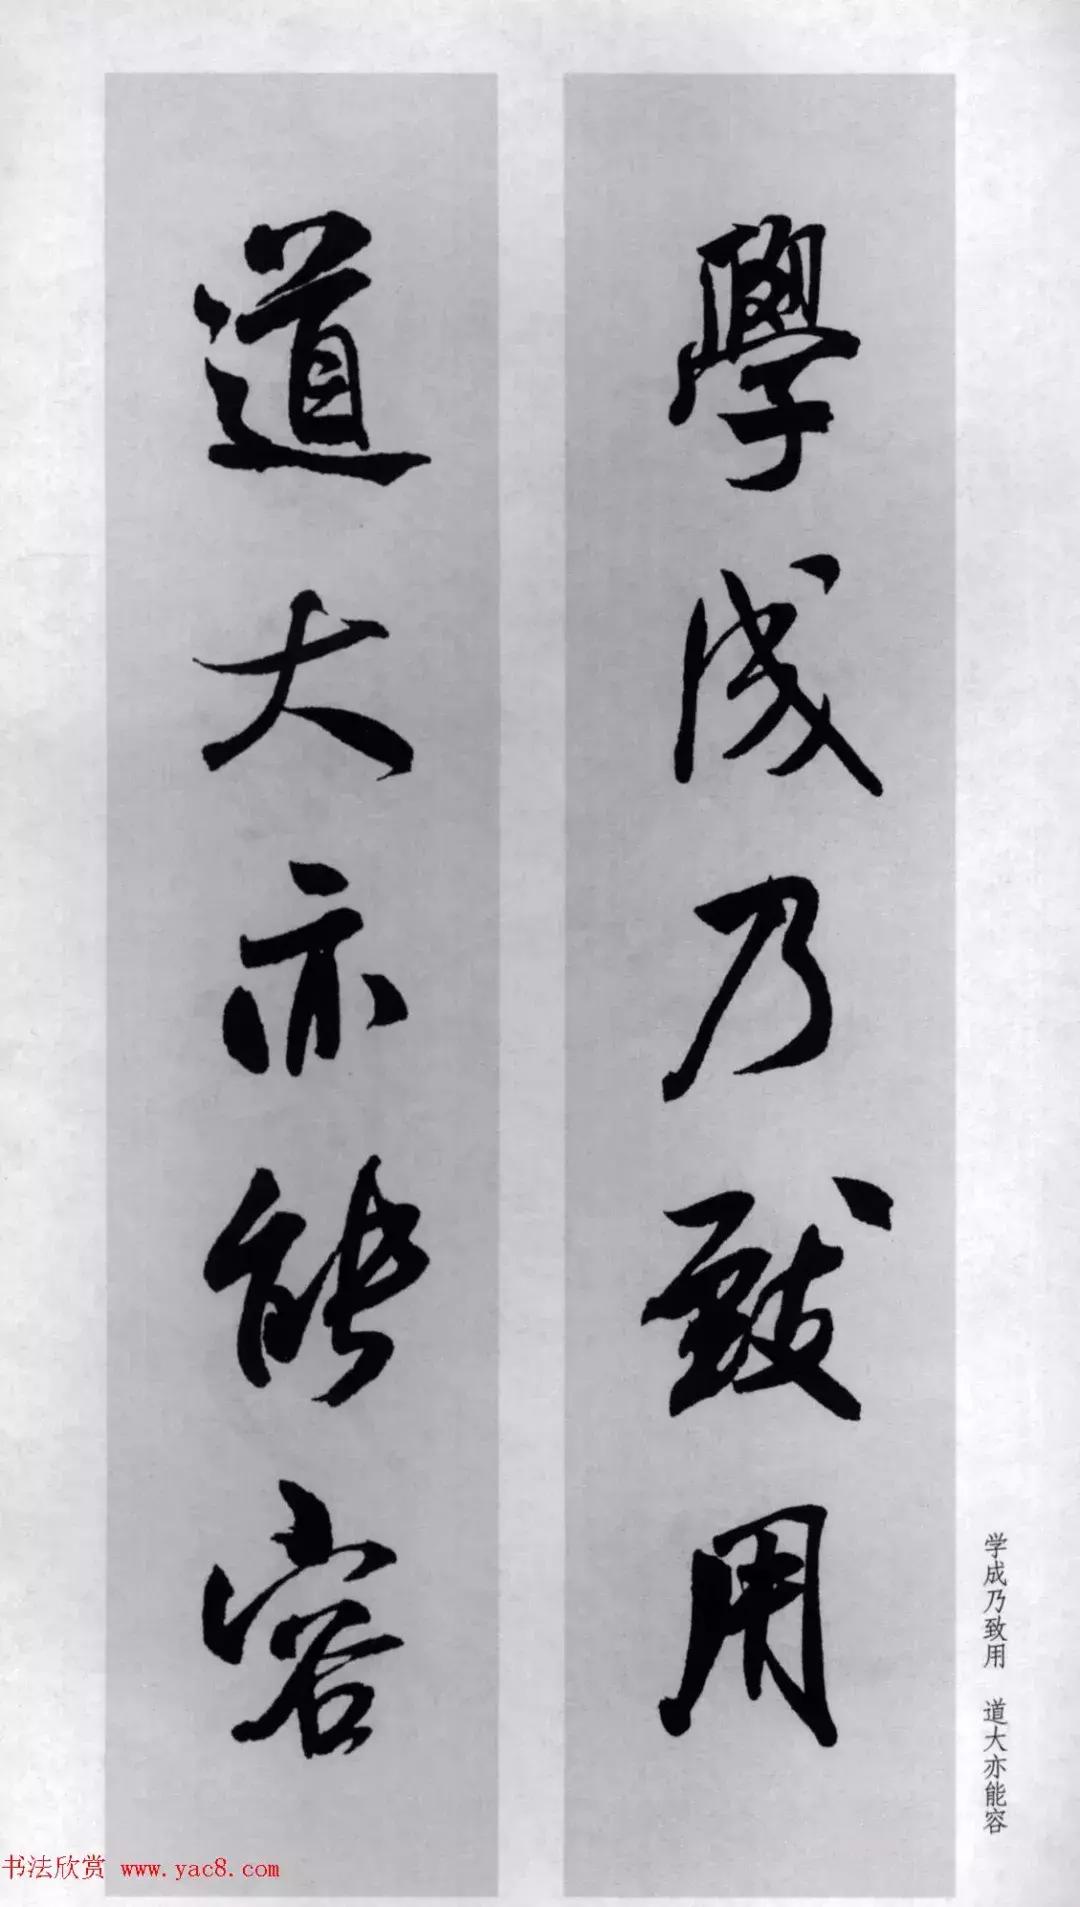 學成乃致用
道大亦能容
学成乃致用 道大亦能容
书法欣赏 www.yac8.com